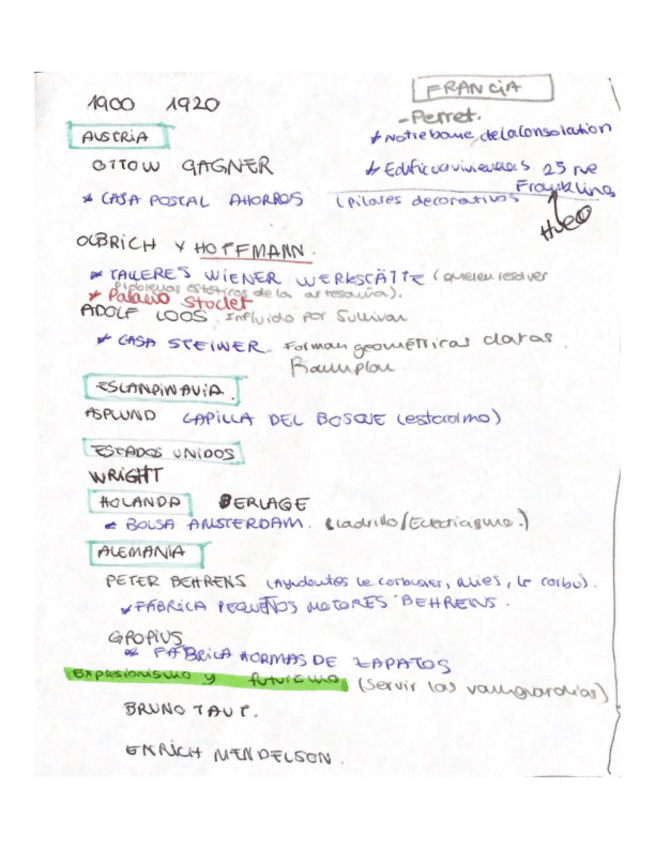 1900 1920
FRANCIA
- Perret.
* Notre bame de la Consolation
* Edificio viviendas 25 rue Franklin
(pilares decorativos
Hueo
AUSTRIA
OTTOW GAGNER
* CASA POSTAL AHORROS
OLBRICH Y HOFFMANN.
* TALLERES WIENER WERKSTÄTTE (quieren resolver
problemas estéticos de la artesanía).
* Palacio Stoclet
ADOLF LOOS Influido por Sullivan
* CASA STEINER. Forman geométricas claras.
Raumplan.
ESCANDINAVIA.
ASPLUND CAPILLA DEL BOSQUE (estocolmo)
ESTADOS UNIDOS
WRIGHT
HOLANDA BERLAGE
* BOLSA AMSTERDAM. (Ladrillo/Eclecticismo.)
ALEMANIA
PETER BEHRENS (Ayudantes le corbusier, Mies, le corbu).
* FÁBRICA PEQUEÑOS MOTORES BEHRENS.
GROPIUS
* FÁBRICA HORMAS DE ZAPATOS
Expresionismo y futurismo (Servir las vanguardias)
BRUNO TAUT.
ENRICH MENDELSON.